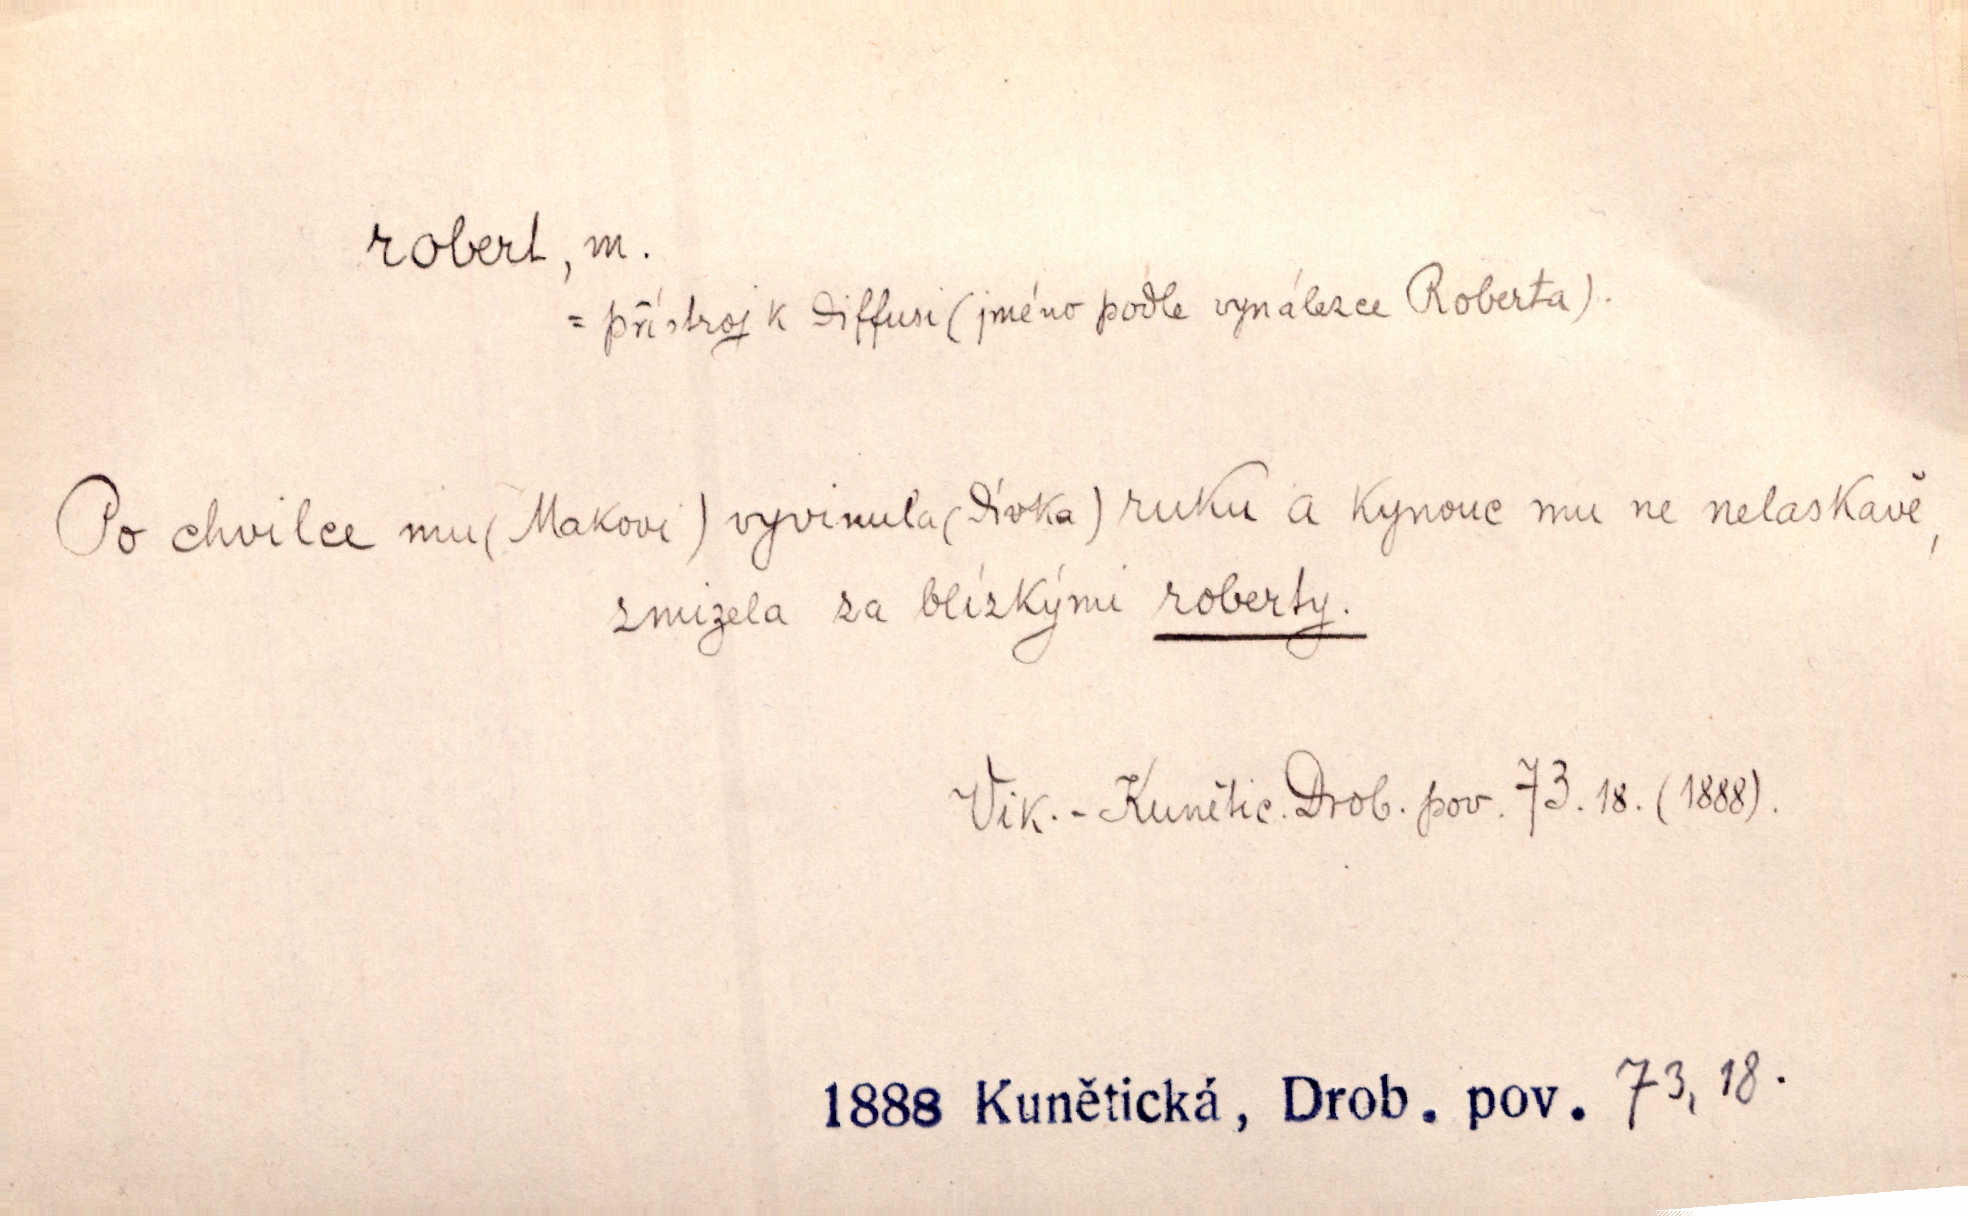 robert, m.
= přístroj k diffusi (jméno podle vynálezce Roberta).
Po chvilce mu (Makovi) vyvinula (dívka) ruku a kynouc mu ne nelaskavě,
zmizela za blízkými roberty.
Vik.-Kunětic. Drob. pov. 73. 18. (1888).
1888 Kunětická, Drob. pov. 73, 18.